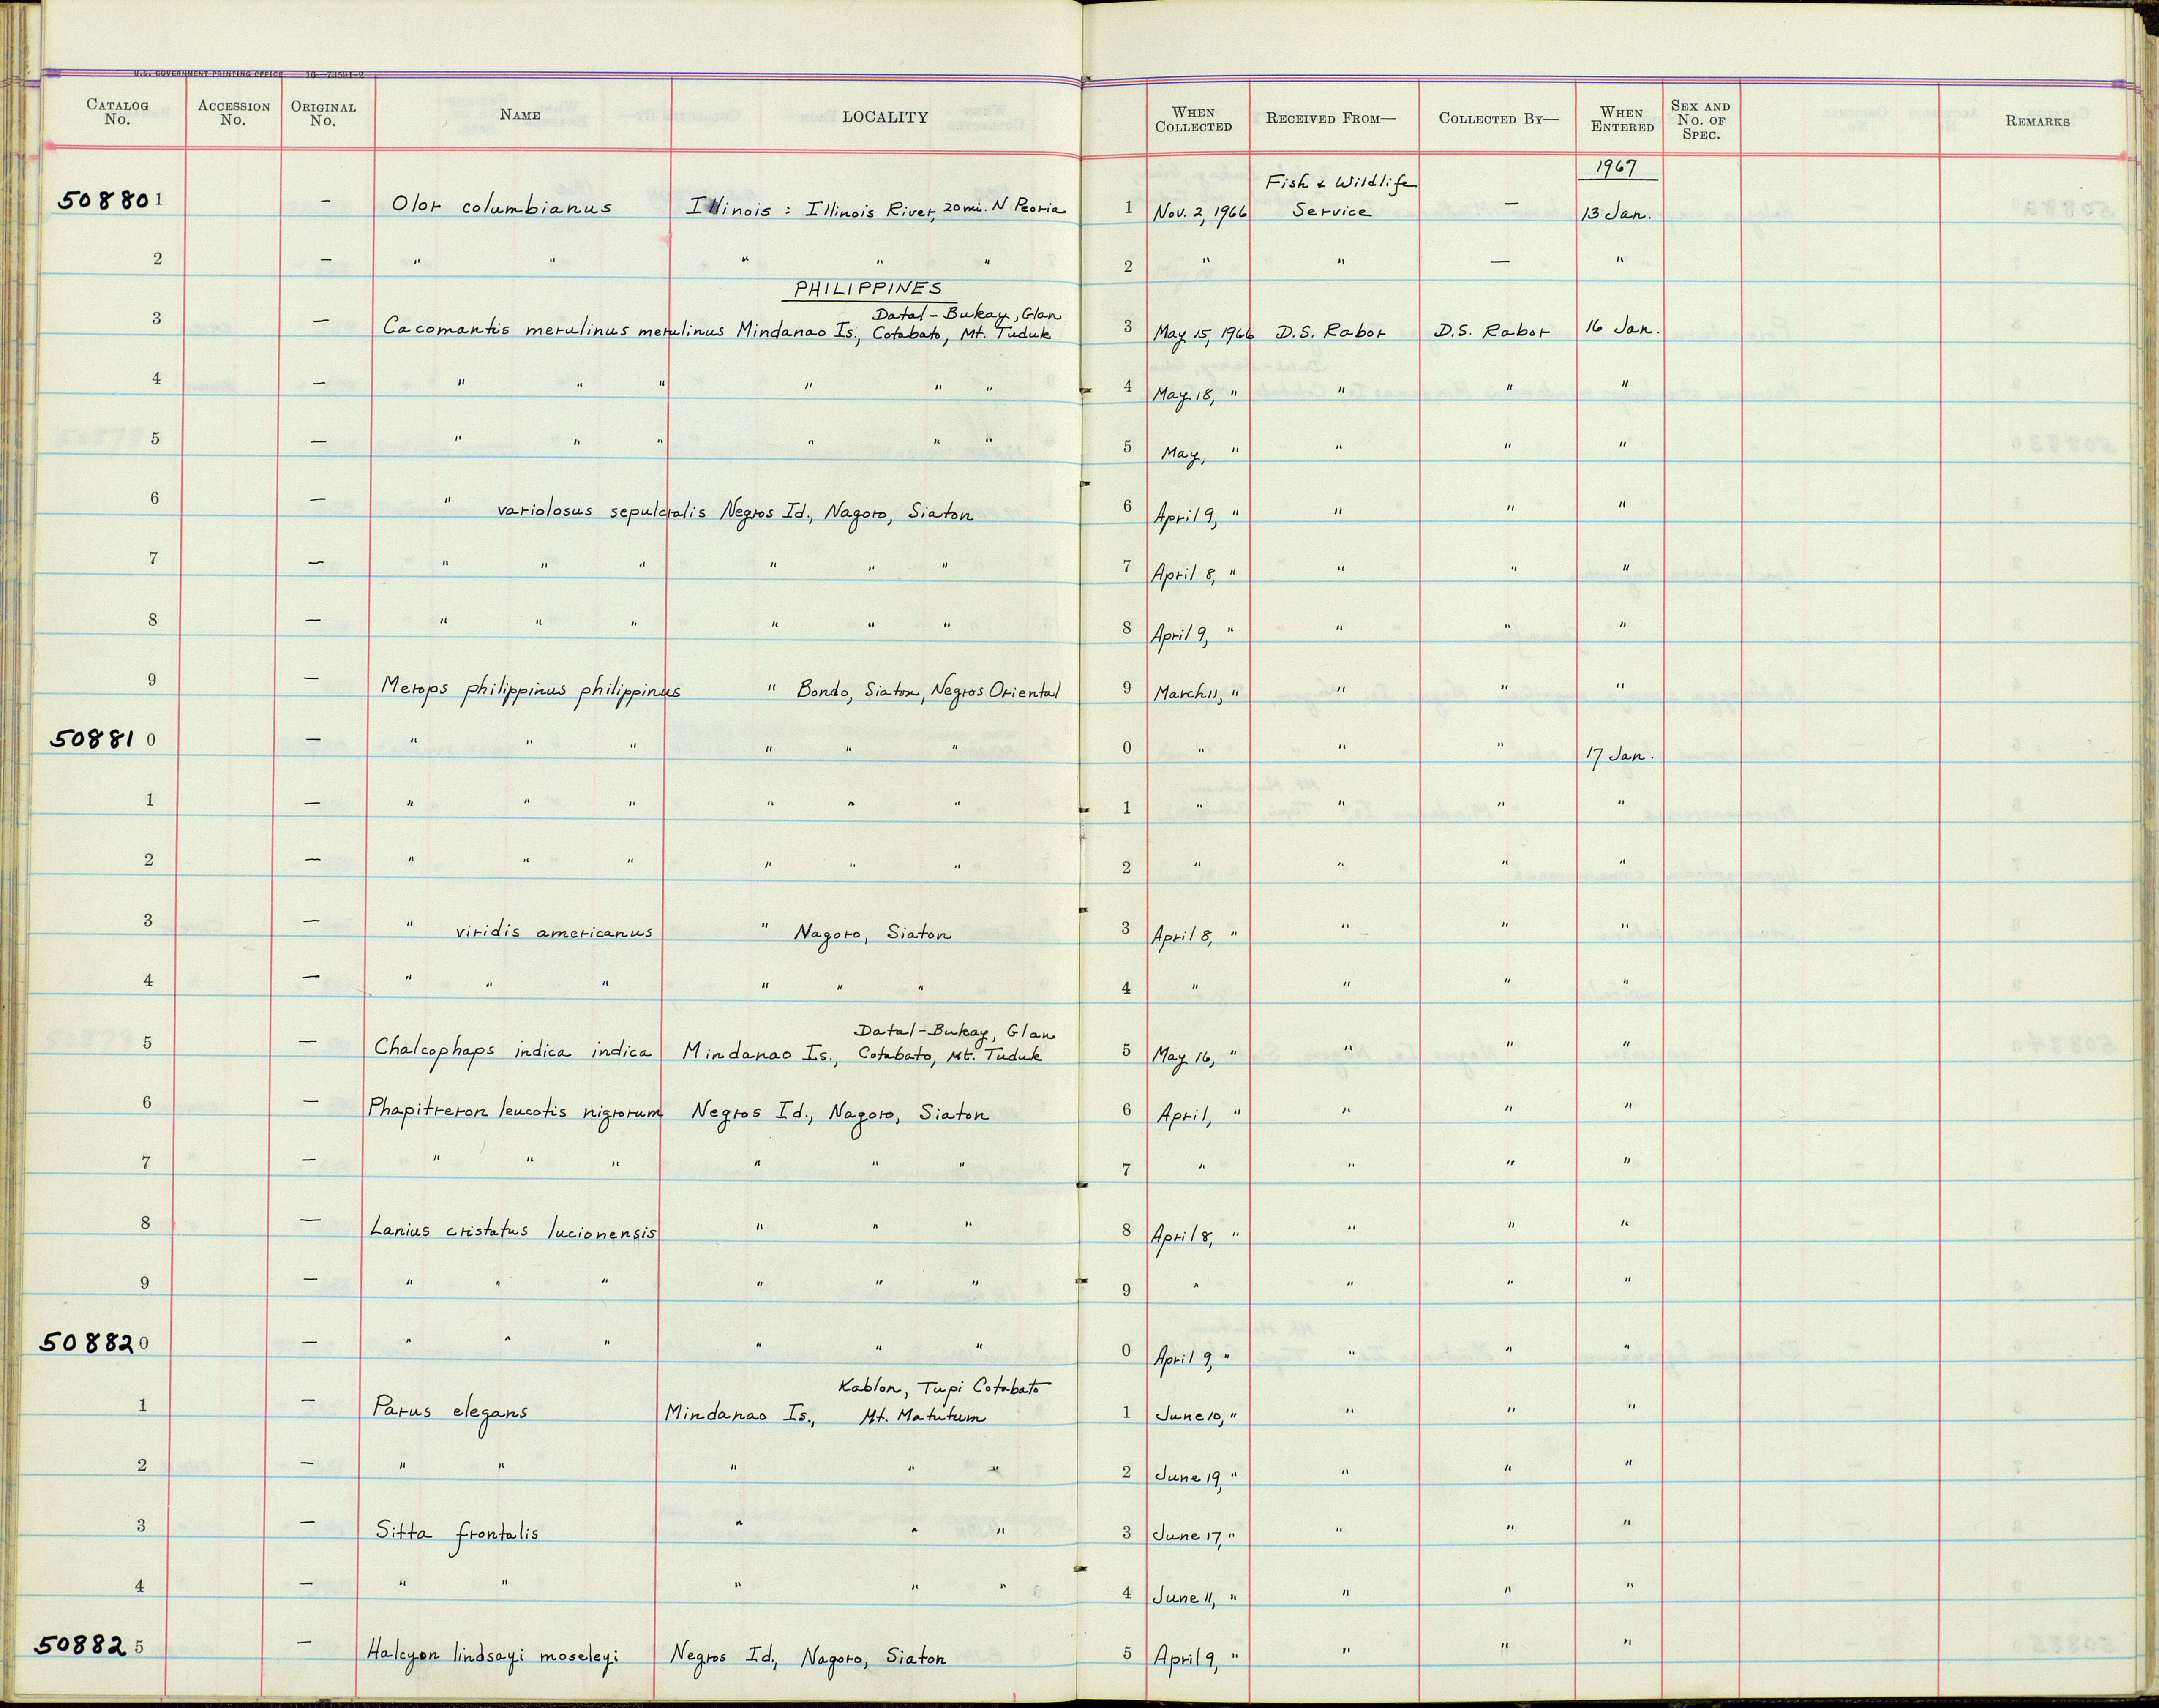 U.S. GOVERNMENT PRINTING OFFICE 16—73591-2
CATALOG No. ACCESSION No. ORIGINAL No. NAME LOCALITY WHEN COLLECTED RECEIVED FROM— COLLECTED BY— WHEN ENTERED SEX AND No. OF SPEC. REMARKS
1967
Fish & Wildlife
508801 — Olor columbianus Illinois : Illinois River, 20 mi. N Peoria 1 Nov. 2, 1966 Service — 13 Jan.
2 — " " " " " 2 " " — "
PHILIPPINES
Datal-Bukay, Glan
3 — Cacomantis merulinus merulinus Mindanao Is., Cotabato, Mt. Tuduk 3 May 15, 1966 D.S. Rabor D.S. Rabor 16 Jan.
4 — " " " " " " 4 May 18, " " " "
5 — " " " " " " 5 May, " " " "
6 — " variolosus sepulcralis Negros Id., Nagoro, Siaton 6 April 9, " " " "
7 — " " " " " " 7 April 8, " " " "
8 — " " " " " " 8 April 9, " " " "
9 — Merops philippinus philippinus " Bondo, Siaton, Negros Oriental 9 March 11, " " " "
508810 — " " " " " " 0 " " " 17 Jan.
1 — " " " " " " 1 " " " "
2 — " " " " " " 2 " " " "
3 — " viridis americanus " Nagoro, Siaton 3 April 8, " " " "
4 — " " " " " " 4 " " " "
Datal-Bukay, Glan
5 — Chalcophaps indica indica Mindanao Is., Cotabato, Mt. Tuduk 5 May 16, " " " "
6 — Phapitreron leucotis nigrorum Negros Id., Nagoro, Siaton 6 April, " " " "
7 — " " " " " " 7 " " " "
8 — Lanius cristatus lucionensis " " " 8 April 8, " " " "
9 — " " " " " " 9 " " " "
508820 — " " " " " " 0 April 9, " " " "
Kablon, Tupi Cotabato
1 — Parus elegans Mindanao Is., Mt. Matutum 1 June 10, " " " "
2 — " " " " " 2 June 19, " " " "
3 — Sitta frontalis " " " 3 June 17, " " " "
4 — " " " " " 4 June 11, " " " "
508825 — Halcyon lindsayi moseleyi Negros Id., Nagoro, Siaton 5 April 9, " " " "